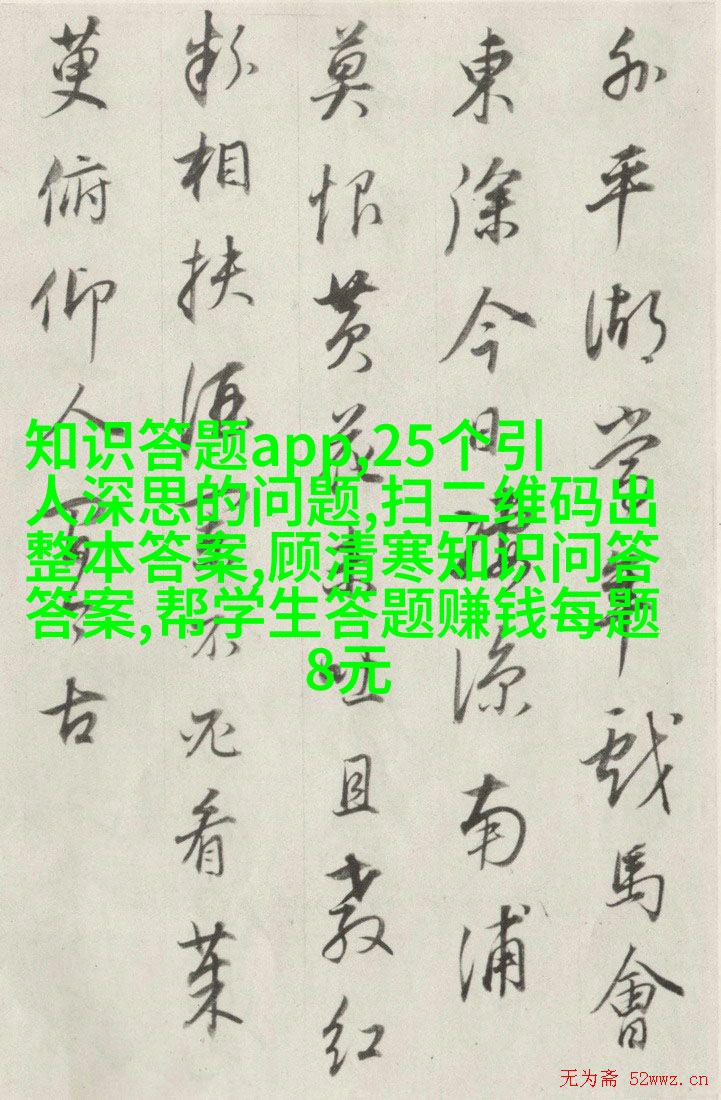 外平湖當年戯馬會
東徐今日淒涼南浦
莫恨黄花未吐且教红
粉相扶酒闌不必看茱
萸俯仰人間今古
知识答题app,25个引
人深思的问题,扫二维码出
整本答案,顾清寒知识问答
答案,帮学生答题赚钱每题
8元
无为斋 52wwz.cn